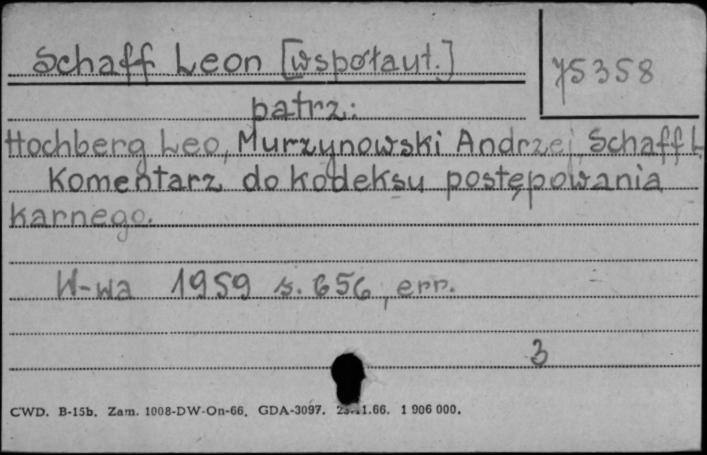 Schaff Leon [współaut.]
75358
patrz:
Hochberg Leo, Murzynowski Andrzej, Schaff L
Komentarz do kodeksu postępowania
karnego.
W-wa 1959 s. 656, err.
3
CWD. B-15b. Zam. 1008-DW-On-66. GDA-3097. 1 906 000.